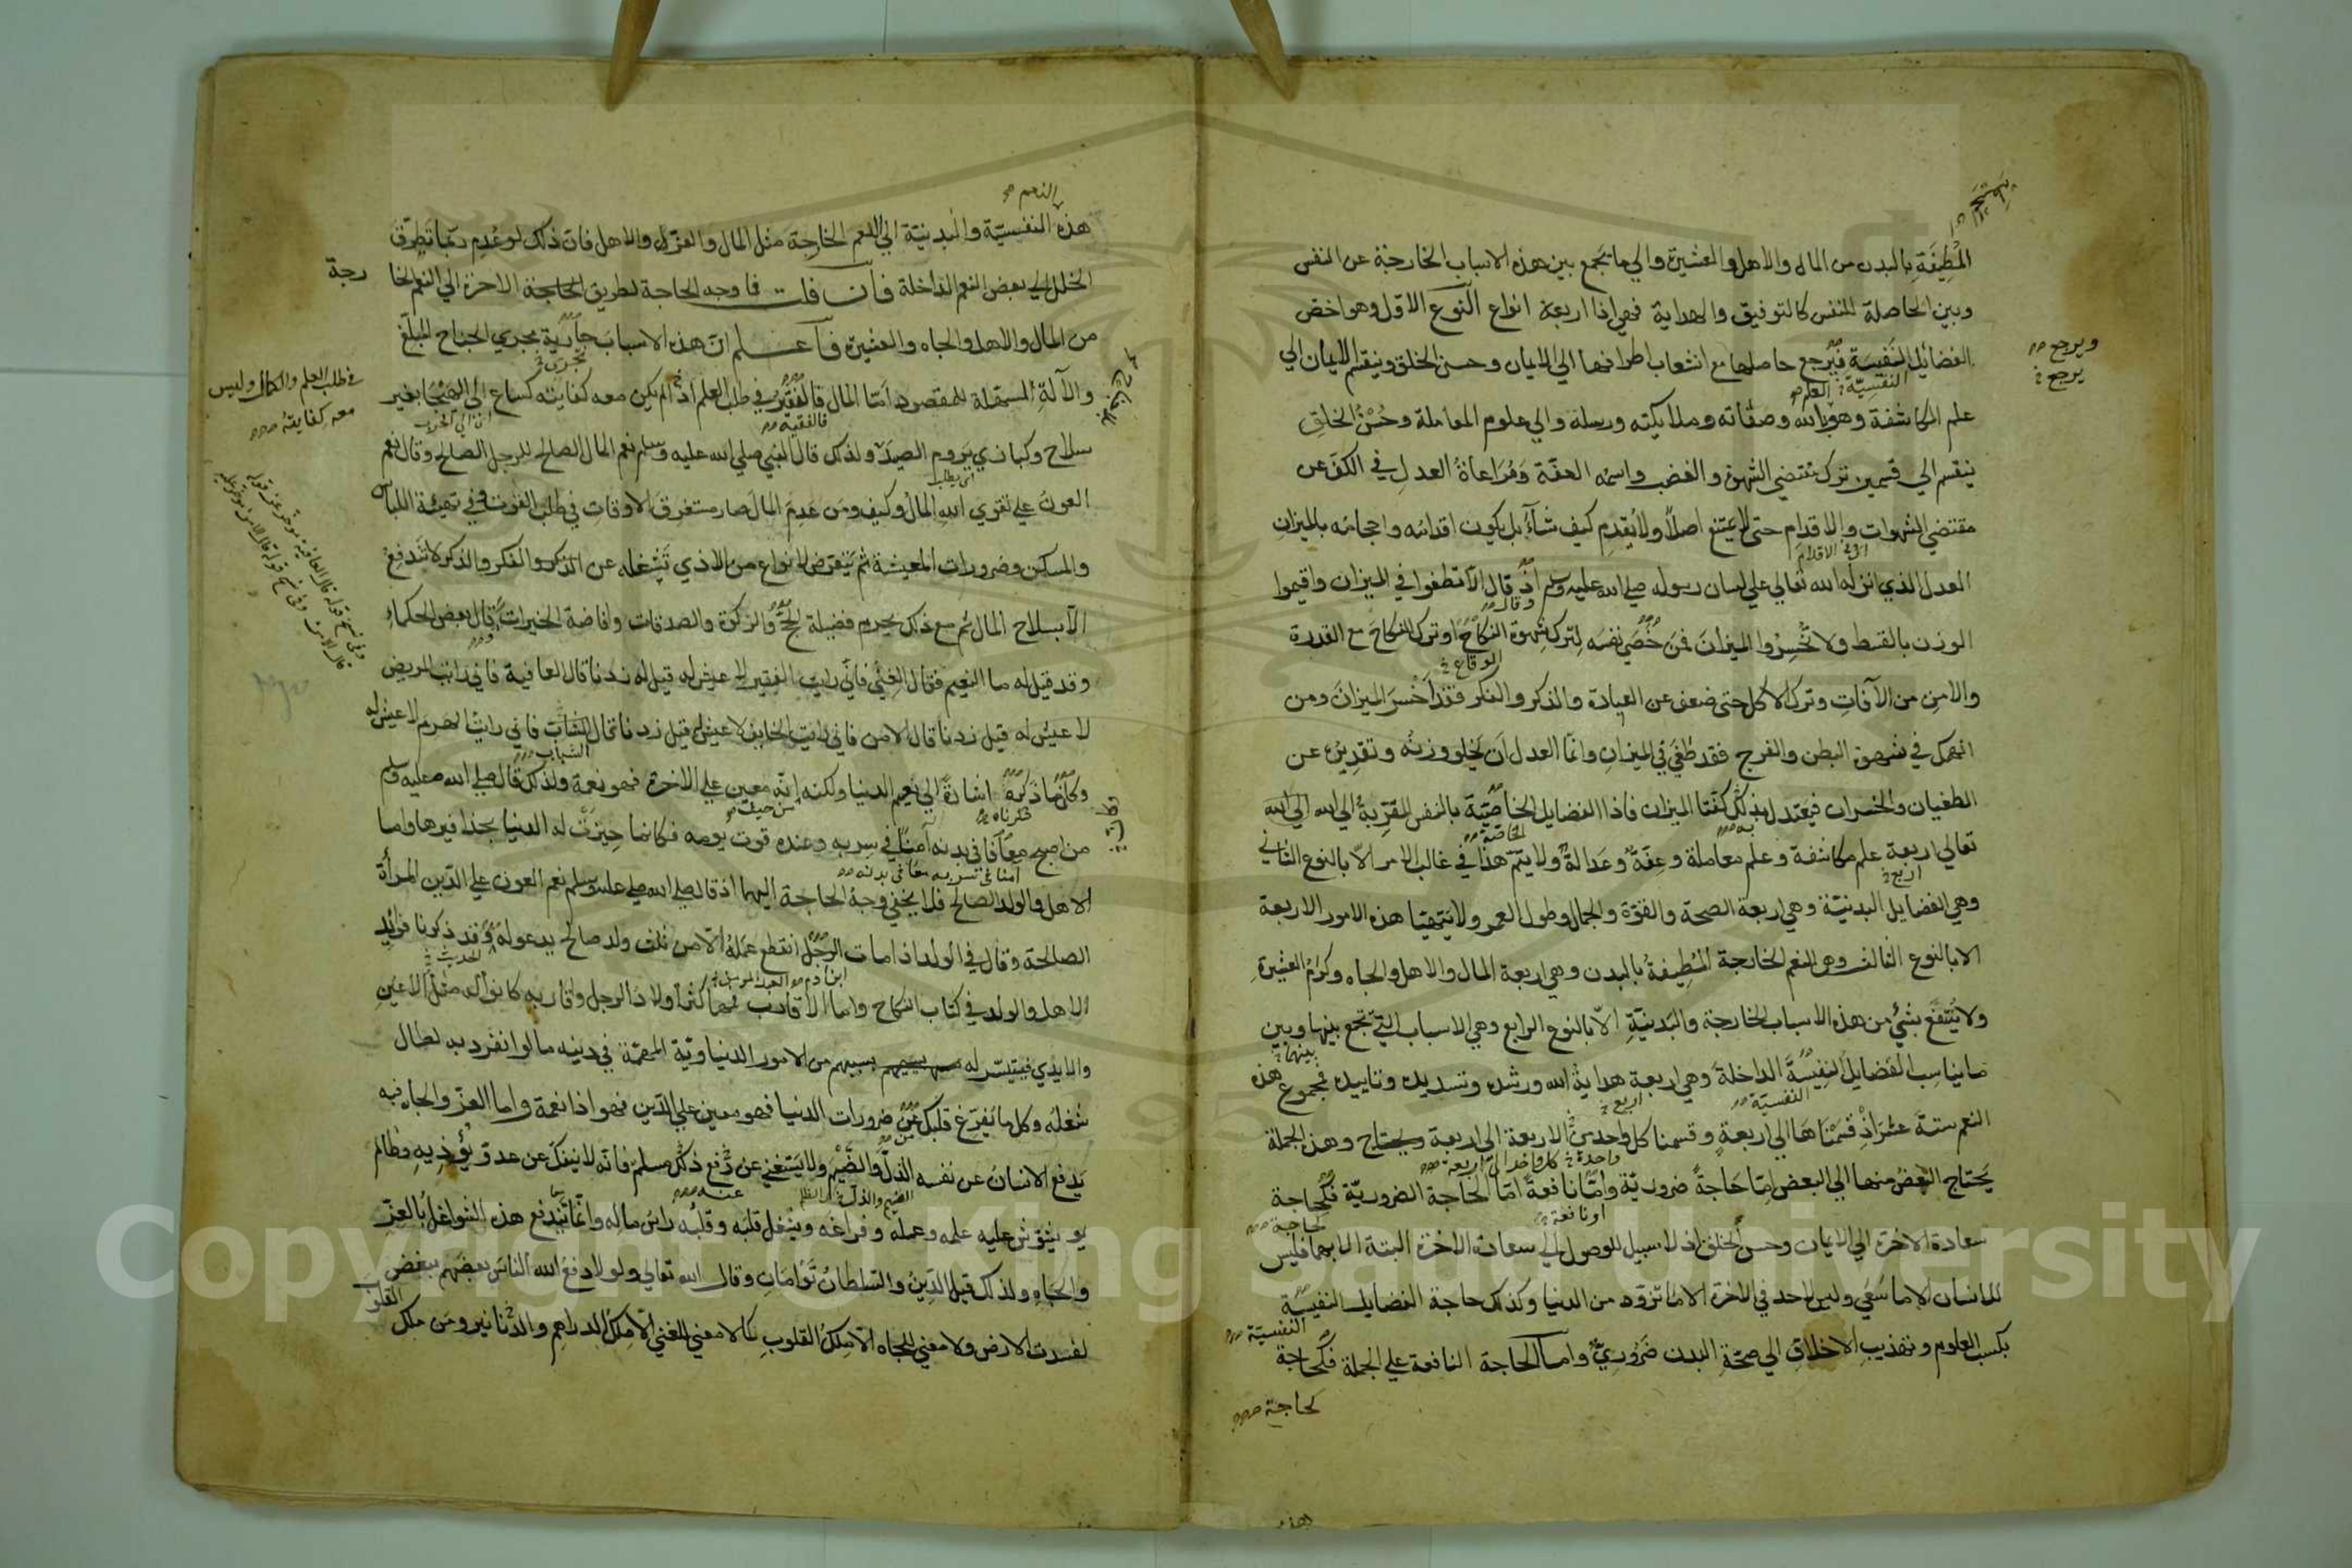 المطيفة بالبدن من المال والاهل والعشيرة والي ما يجمع بين هذه الاسباب الخارجة عن النفس
وبين الحاصلة للنفس كالتوفيق والهداية فهي اذا اربعة انواع النوع الاول وهو اخص
الفضائل النفيسة فيرجع حاصلها مع انشعاب اطرافها الي الايمان وحسن الخلق وينقسم الايمان الي
ويرجع
يرجع
النفسية العلم
علم المكاشفة وهو بالله وصفاته وملائكته ورسله والي علوم المعاملة وحسن الخلق
ينقسم الي قسمين ترك مقتضي الشهوة والغضب واسمه العفة ومراعاة العدل في الكف عن
مقتضي الشهوات والاقدام حتي لا يمتنع اصلا ولا يقدم كيف شاء بل يكون اقدامه واحجامه بالميزان
العدل الذي انزله الله تعالي علي لسان رسوله صلي الله عليه وسلم اذ قال الا تطغوا في الميزان واقيموا
الوزن بالقسط ولا تخسروا الميزان فمن خصي نفسه لترك شهوة النكاح او ترك النكاح مع القدرة
الوقاع
والامن من الآفات وترك الاكل حتي ضعف عن العبادة والذكر والفكر فقد اخسر الميزان ومن
انهمك في شهوة البطن والفرج فقد طغي في الميزان وانما العدل ان يخلو وزنه وتقديره عن
الطغيان والخسران فيعتدل بذلك كفتا الميزان فاذا الفضايل الخاصية بالنفس المقربة الي الله الي الله
الخاصة
تعالي اربعة علم مكاشفة وعلم معاملة وعفة وعدالة ولا يتم هذا في غالب الامر الا بالنوع الثاني
اربع
وهي الفضايل البدنية وهي اربعة الصحة والقوة والجمال وطول العمر ولا يتهيا هذه الامور الاربعة
الا بالنوع الثالث وهي النعم الخارجة المطيفة بالبدن وهي اربعة المال والاهل والجاه وكرم العشيرة
ولا ينتفع بشئ من هذه الاسباب الخارجة والبدنية الا بالنوع الرابع وهي الاسباب التي تجمع بينها وبين
بينهما
ما يناسب الفضايل النفيسة الداخلة وهي اربعة هداية الله ورشده وتسديده وتاييده فمجموع هذه
النفسية
اربع
النعم ستة عشر اذ قسمناها الي اربعة وقسمنا كل واحد من الاربعة الي اربعة ويحتاج وهذه الجملة
واحدة كل واحد الي اربعة
يحتاج البعض منها الي البعض اما حاجة ضرورية واما نافعة اما الحاجة الضرورية فكحاجة
او نافعة
لحاجة
سعادة الاخرة الي الايمان وحسن الخلق اذ لا سبيل للوصول الي سعادة الاخرة البتة الا بهما فليس
للانسان الا ما سعي وليس لاحد في الاخرة الا ما تزود من الدنيا وكذلك حاجة الفضايل النفيسة
النفسية
بكسب العلوم وتهذيب الاخلاق الي صحة البدن ضروري واما الحاجة النافعة علي الجملة فكحاجة
كحاجة
هذه
النعم
هذه النفسية والبدنية الي النعم الخارجة مثل المال والعز والاهل فان ذلك لو عدم ربما تطرق
الخلل الي بعض النعم الداخلة فان قلت فما وجه الحاجة لطريق الاخرة الي النعم الخا
رجة
من المال والاهل والجاه والعشيرة فاعلم ان هذه الاسباب جارية مجري الجناح المبلغ
والآلة المستعملة للمقصود اما المال فالفقير في طلب العلم اذ الم يكن معه كفايته كساع الي الهيجا بغير
في طلب العلم والكمال وليس
معه كفايته
فالفقيه
اي الي الحرب
سلاح وكبازي يروم الصيد ولذلك قال النبي صلي الله عليه وسلم نعم المال الصالح للرجل الصالح وقال نعم
اي يطلب
العون علي تقوي الله المال وكيف ومن عدم المال صار مستغرق الاوقات في طلب القوت وفي تهيئة اللباس
والمسكن وضرورات المعيشة ثم يتعرض لانواع من الاذي تشغله عن الذكر والفكر والذكر لا تندفع
الا بسلاح المال ثم مع ذلك يحرم فضيلة الحج والزكوة والصدقات وافاضة الخيرات وقال بعض الحكماء
وقد قيل له ما النعيم فقال الغني فاني رايت الفقير لا عيش له قيل له زدنا قال العافية فاني رايت المريض
لا عيش له قيل زدنا قال الامن فاني رايت الخايف لا عيش له قيل زدنا قال الشاب فاني رايت الهرم لا عيش له
الشباب
وكان ما ذكره اشارة الي نعيم الدنيا ولكنه انه معين علي الاخرة فهو نعمة ولذلك قال صلي الله عليه وسلم
ذكرناه
من حيث
من اصبح معافا في بدنه آمنا في سربه وعنده قوت يومه فكانما حيزت له الدنيا بحذافيرها واما
آمنا في سربه معافي في بدنه
الاهل والولد الصالح فلا يخفي وجه الحاجة اليهما اذ قال صلي الله عليه وسلم نعم العون علي الدين المرأة
الصالحة وقال في الولد اذا مات الرجل انقطع عمله الا من ثلث ولد صالح يدعو له وقد ذكرنا فوائد
الحديث
ابن آدم
الاهل والولد في كتاب النكاح واما الاقارب فمهما كثر اولاد الرجل واقاربه كانوا له مثل الاعين
والايدي فيتيسر له بسببهم من الامور الدنياوية المهمة في دينه ما لو انفرد به لطال
شغله وكل ما يفرغ قلبك عن ضرورات الدنيا فهو معين علي الدين فهو اذا نعمة واما العز والجاه فبه
يدفع الانسان عن نفسه الذل والضيم ولا يستغني عن دفع ذلك مسلم فانه لا ينفك عن عدو يؤذيه وظالم
عنه
يشوش عليه علمه وعمله وفراغه ويشغل قلبه وقلبه راس ماله وانما تندفع هذه الشواغل بالعز
والجاه ولذلك قيل الدين والسلطان توامان وقال الله تعالي ولولا دفع الله الناس بعضهم ببعض
لفسدت الارض ولا معني للجاه الا ملك القلوب كما لا معني للغني الا ملك الدراهم والدنانير ومن ملك
القلوب
Copyright © King Saud University